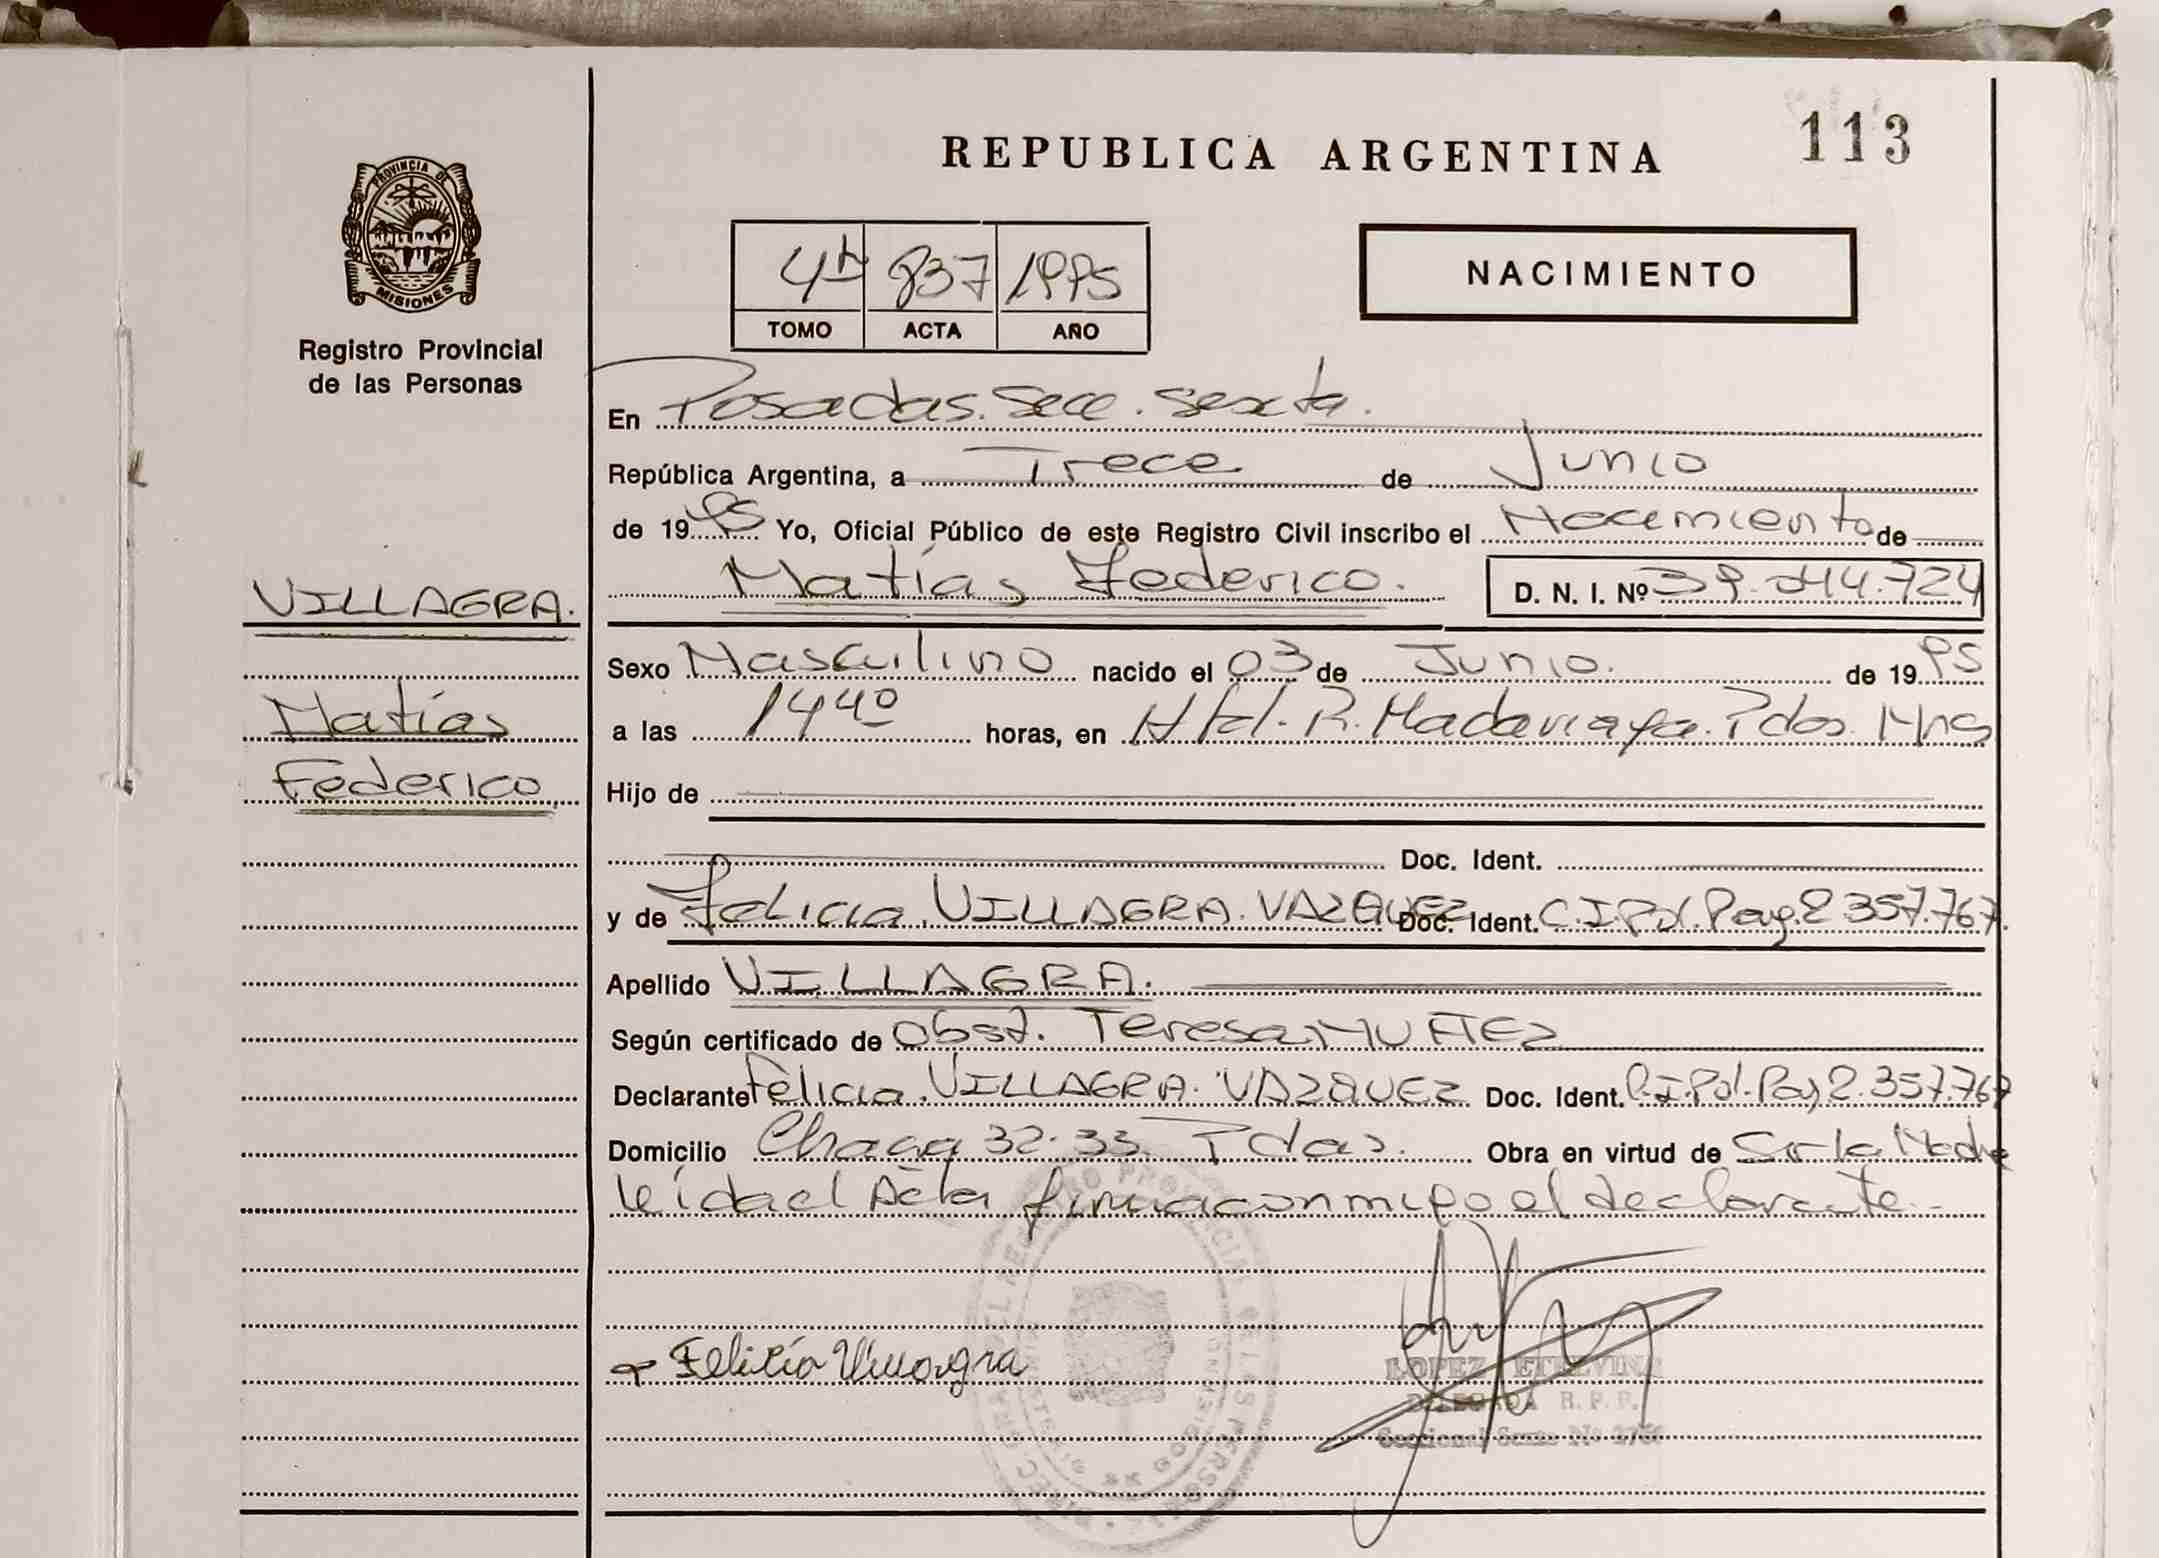 REPUBLICA ARGENTINA
113
PROVINCIA DE
MISIONES
Registro Provincial
de las Personas
837 1995
TOMO ACTA AÑO
NACIMIENTO
En Posadas. Secc. Sexta.
República Argentina, a Trece de Junio
de 1995 Yo, Oficial Público de este Registro Civil inscribo el Nacimiento de
Matías Federico. D. N. I. Nº 39.044.724
VILLAGRA.
Matías
Federico
Sexo Masculino nacido el 03 de Junio. de 1995
a las 1440 horas, en R. Madariaga. Pdas. Mnes
Hijo de
Doc. Ident.
y de Felicia. VILLAGRA. VAZQUEZ Doc. Ident. C.I.Pol. Pay. 2.357.767.
Apellido VILLAGRA.
Según certificado de Obst. Teresa MUÑEZ
Declarante Felicia. VILLAGRA. VAZQUEZ Doc. Ident. C.I.Pol. Pay 2.357.767
Domicilio 32-33 Pdas. Obra en virtud de Ser la Madre
leída el Acta firma conmigo el declarante.-
Felicia Villagra
LOPEZ ETELVINA
DELEGADA R. P. P.
Seccional Sexta Nº